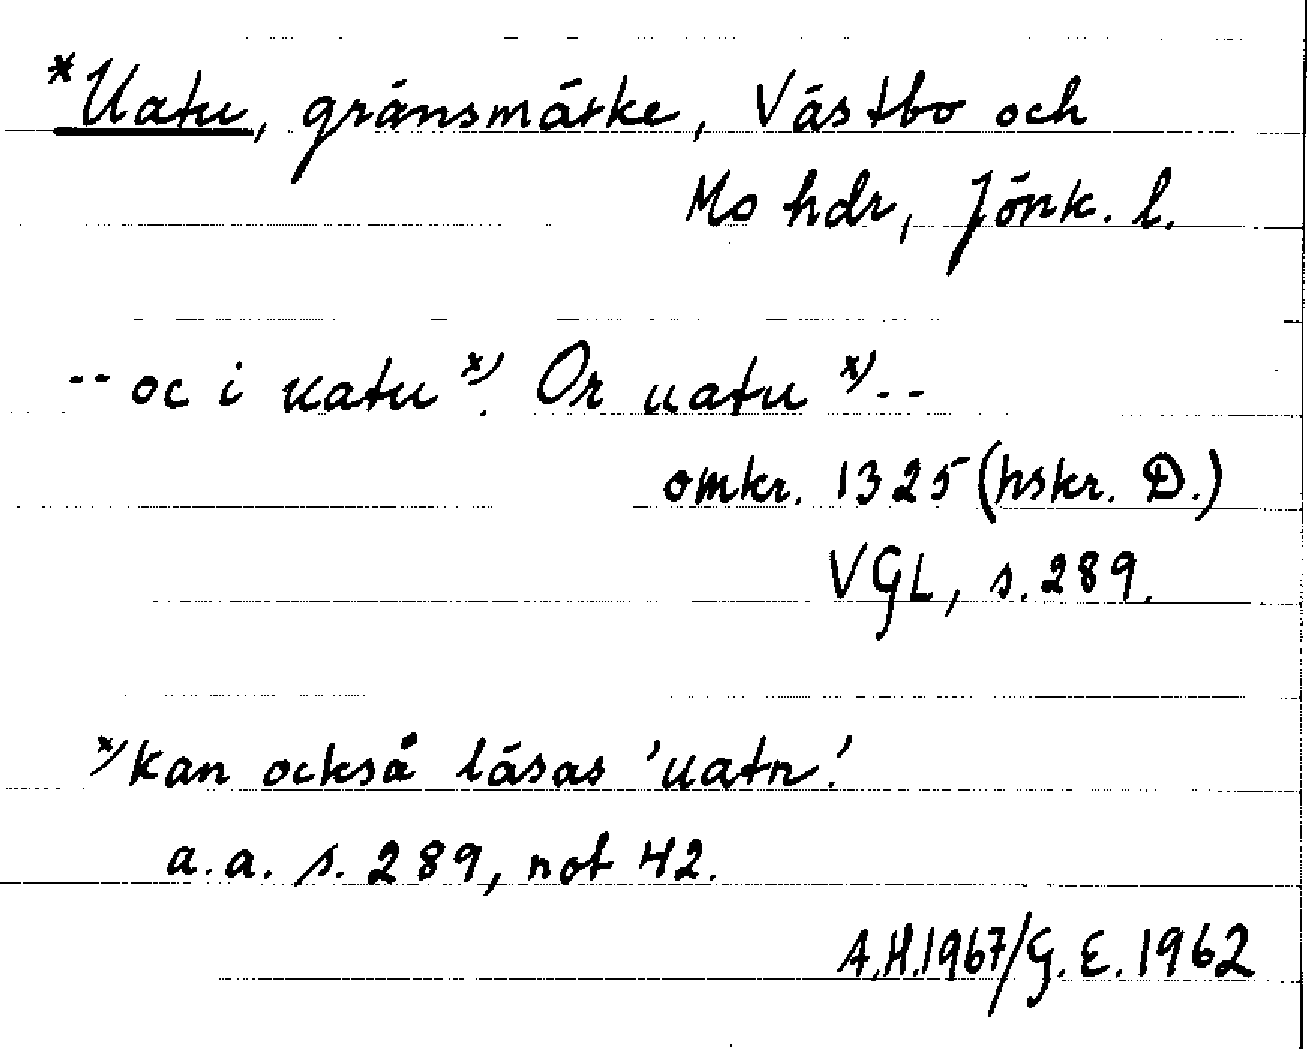 *Uatu, gränsmärke, Västbo och
Mo hdr, Jönk. l.
-- oc i uatu x). Or uatu x) --
omkr. 1325 (hskr. D.)
VGL, s. 289.
x) kan också läsas 'uatn'.
a.a. s. 289, not 42.
A.H.1967/G.E.1962